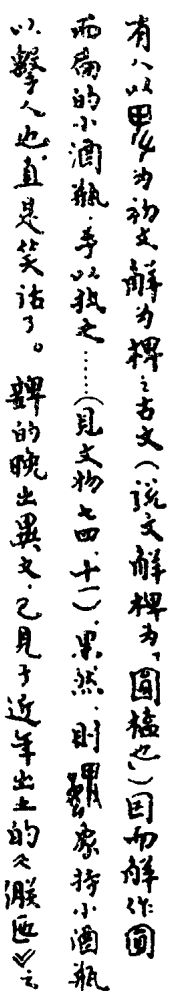 有人以甲为初文，解为椑之古文（说文解椑为“圆榼也”）因而解作圆
而扁的小酒瓶，手以执之……（见文物七四、十一）果然，则庸蔡持小酒瓶
以击人也，直是笑话了。卑的晚出异文，已见于近年出土的〈㒸匜〉云